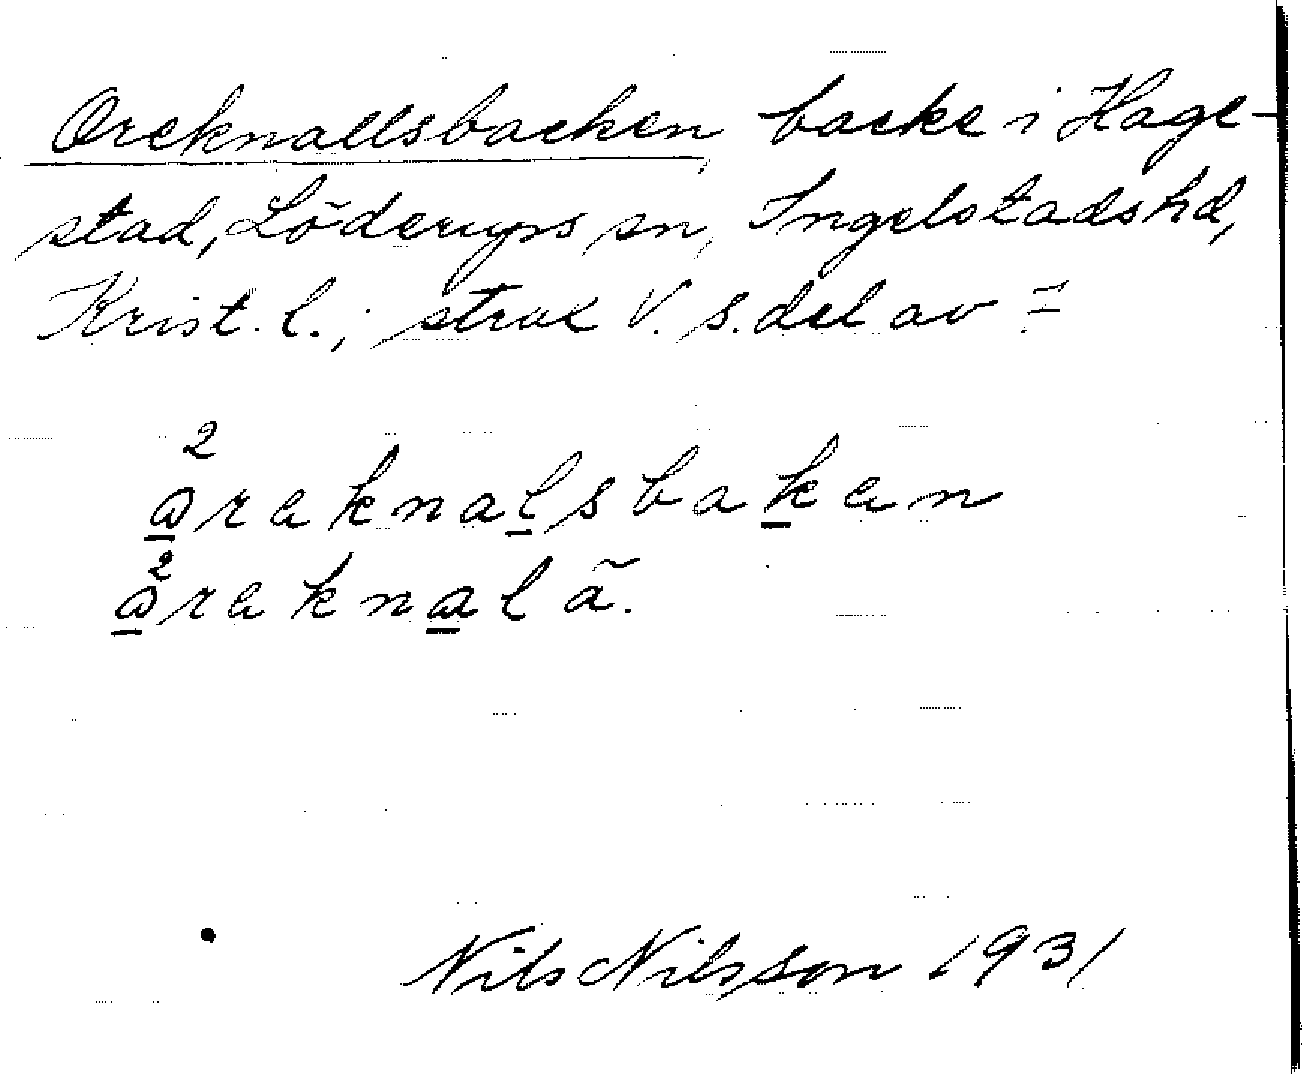 Oreknallsbacken, backe i Hage-
stad, Löderups sn, Ingelstads hd,
Krist. l.; strax V. s. del av
2
areknalsbakan
2
areknalã.
Nils Nilsson 1931